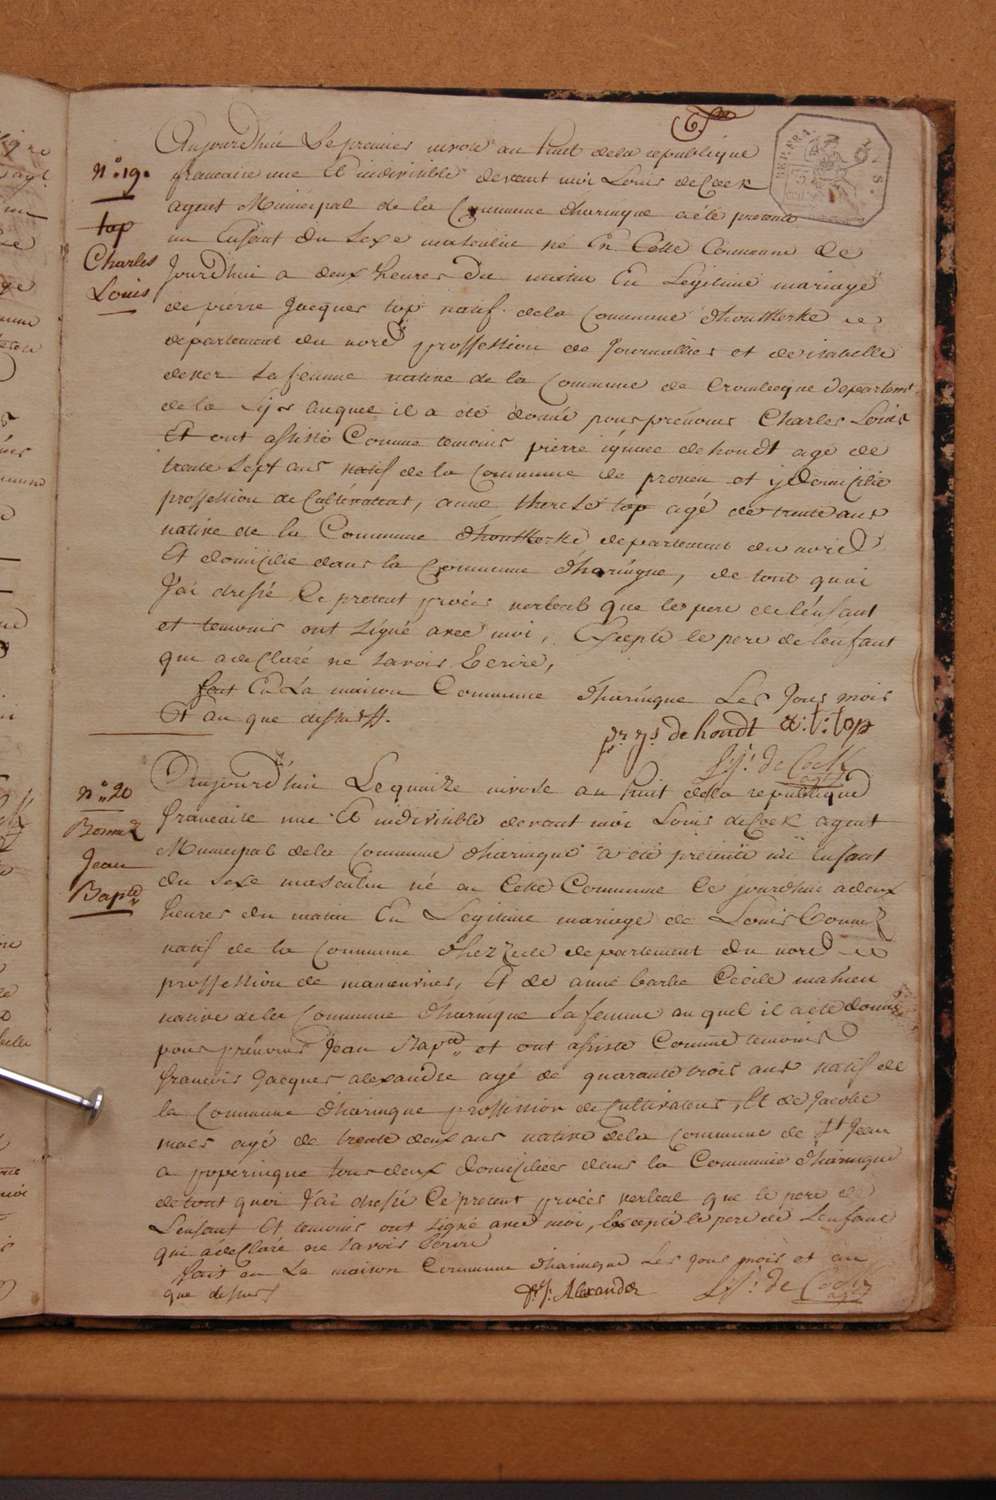 6
REP. FRA.
N°. 19.
top
Charles
Louis
Aujourd'hui le premier nivose an huit de la republique
francaise une Et indivisible devant moi Louis de Cock
agent Municipal de la Commune d'haringue a été presenté
un Enfant du sexe masculin né En Cette Commune Ce
Jourd'hui a deux heures du matin En Legitime mariage
de pierre Jacques top natif de la Commune d'houtkerke
departement du nord proffession de Journallier et de isabelle
sa femme native de la Commune de Crombecque departemt
de la Lijs auquel il a été donné pour prénoms Charles Louis
Et ont assisté Comme temoins pierre ignace dehondt agé de
trente Sept ans natif de la Commune de proven et y domicilié
proffession de Cultivateur, anne therese top agé de trente ans
native de la Commune d'houtkerke departement du nord
Et domicilie dans la Commune d'haringue, de tout quoi
J'ai dressé Ce present procès verbal que le pere de l'enfant
et temoins ont signé avec moi, Excepté le pere de l'enfant
qui a declaré ne savoir Ecrire,
fait En La maison Commune d'haringue Les Jour mois
Et an que dessus.
pr. js. de hondt a: t: top
Ls. de Cock
agt
N°. 20
Bonnez
Jean
Bapte
Aujourd'hui Le quinze nivose an huit de la republique
francaise une Et indivisible devant moi Louis de Cock agent
Municipal de la Commune d'haringue a été presenté un Enfant
du sexe masculin né en Cette Commune Ce jourdhui a deux
heures du matin En Legitime mariage de Louis Bonnez
natif de la Commune d'hezeele departement du nord
proffession de manouvrier, Et de anne barbe Cecile mahieu
native de la Commune d'haringue sa femme auquel il a été donné
pour prénoms Jean Bapte et ont assisté Comme temoins
francois Jacques alexandre agé de quarante trois ans natif de
la Commune d'haringue proffession de Cultivateur, Et de Jacobe
maes agé de trente deux ans native de la Commune de St Jean
a poperingue tous deux domiciliés dans la Commune d'haringue
de tout quoi J'ai dressé Ce present procès verbal que le pere de
L'enfant Et temoins ont signé avec moi, Excepté le pere de L'enfant
qui a declaré ne savoir Ecrire
fait en La maison Commune d'haringue Les Jour mois et an
que dessus
fr. j. Alexander Ls. de Cock
agt